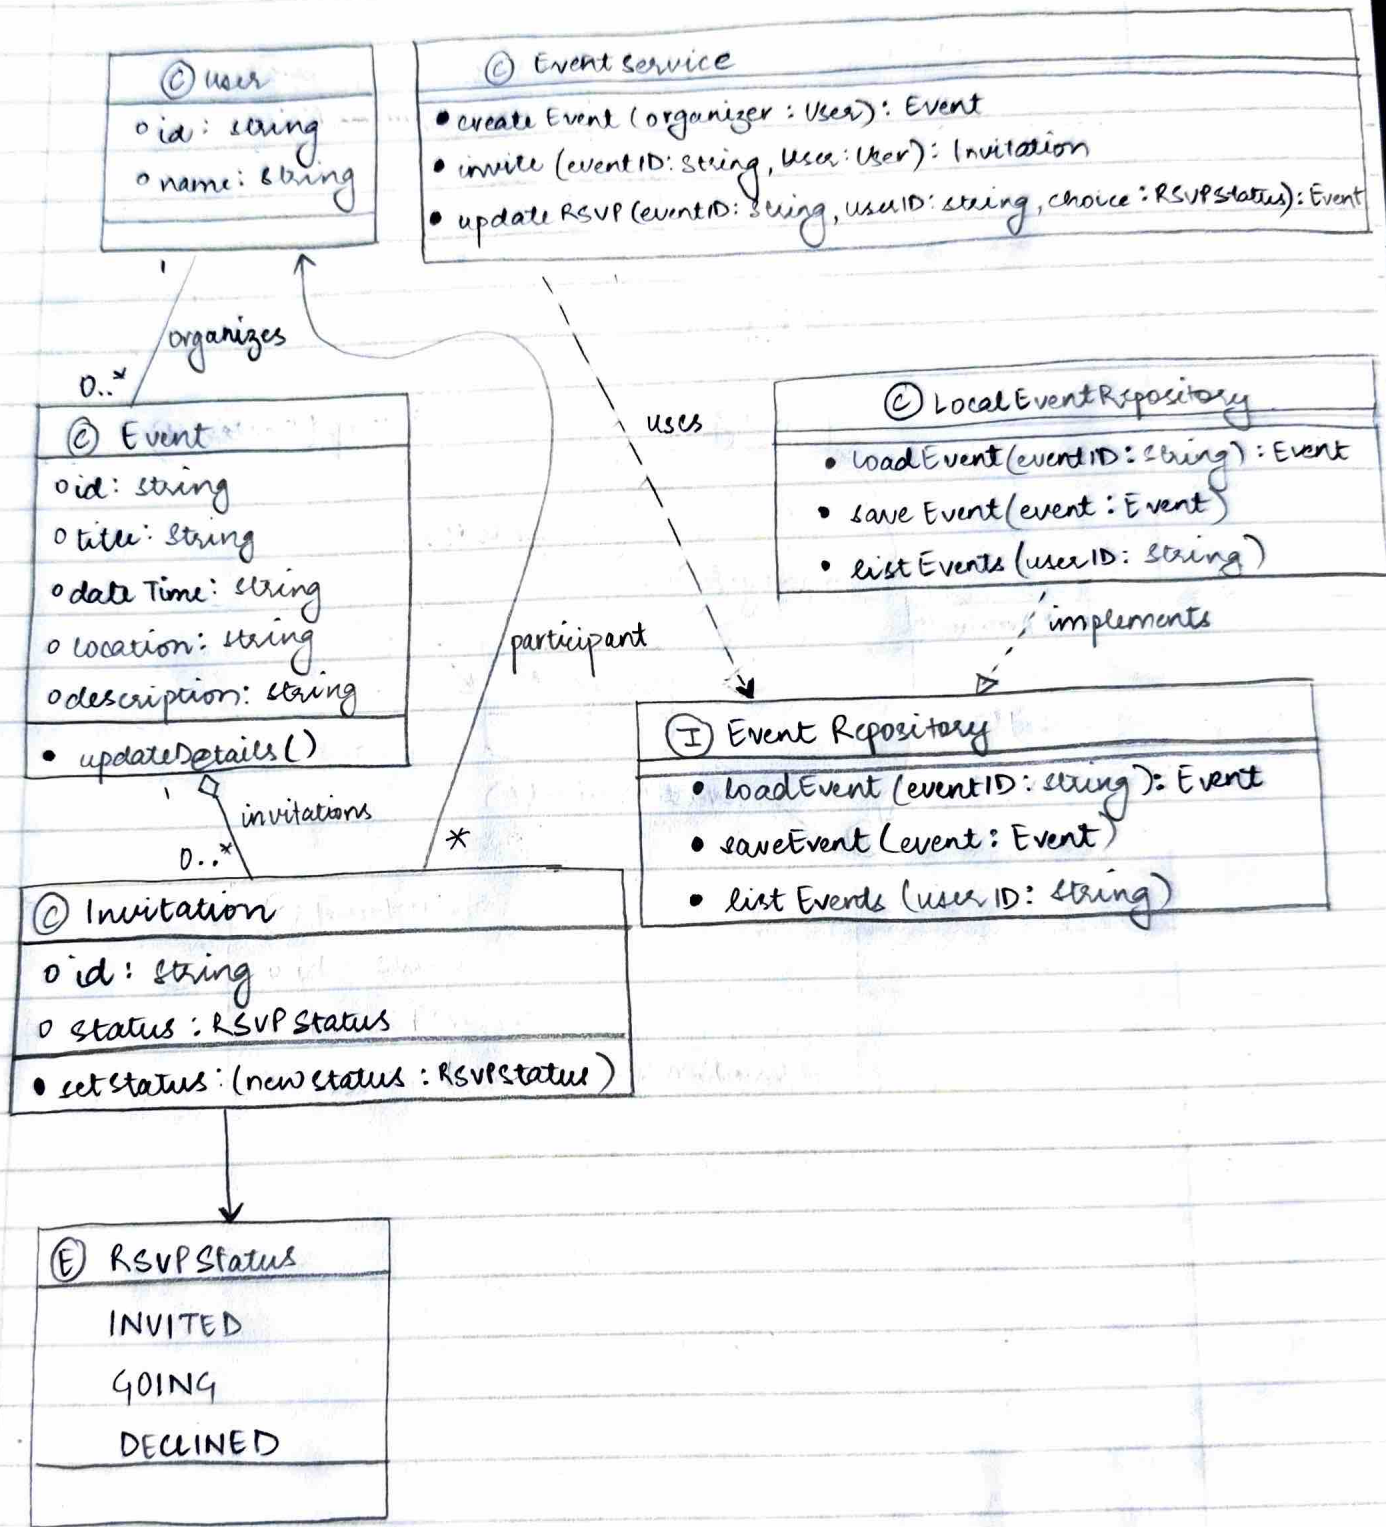 Ⓒ User
o id: string
o name: string
Ⓒ EventService
• createEvent(organizer: User): Event
• invite(eventID: String, User: User): Invitation
• updateRSVP(eventID: String, userID: string, choice: RSVPStatus): Event
1
organizes
0..*
Ⓒ Event
o id: string
o title: String
o dateTime: string
o location: string
o description: string
• updateDetails()
1
invitations
0..*
participant
*
uses
Ⓒ LocalEventRepository
• loadEvent(eventID: string): Event
• saveEvent(event: Event)
• listEvents(userID: String)
implements
Ⓘ EventRepository
• loadEvent(eventID: string): Event
• saveEvent(event: Event)
• listEvents(userID: String)
Ⓒ Invitation
o id: string
o status: RSVPStatus
• setStatus:(newstatus: RSVPStatus)
Ⓔ RSVPStatus
INVITED
GOING
DECLINED